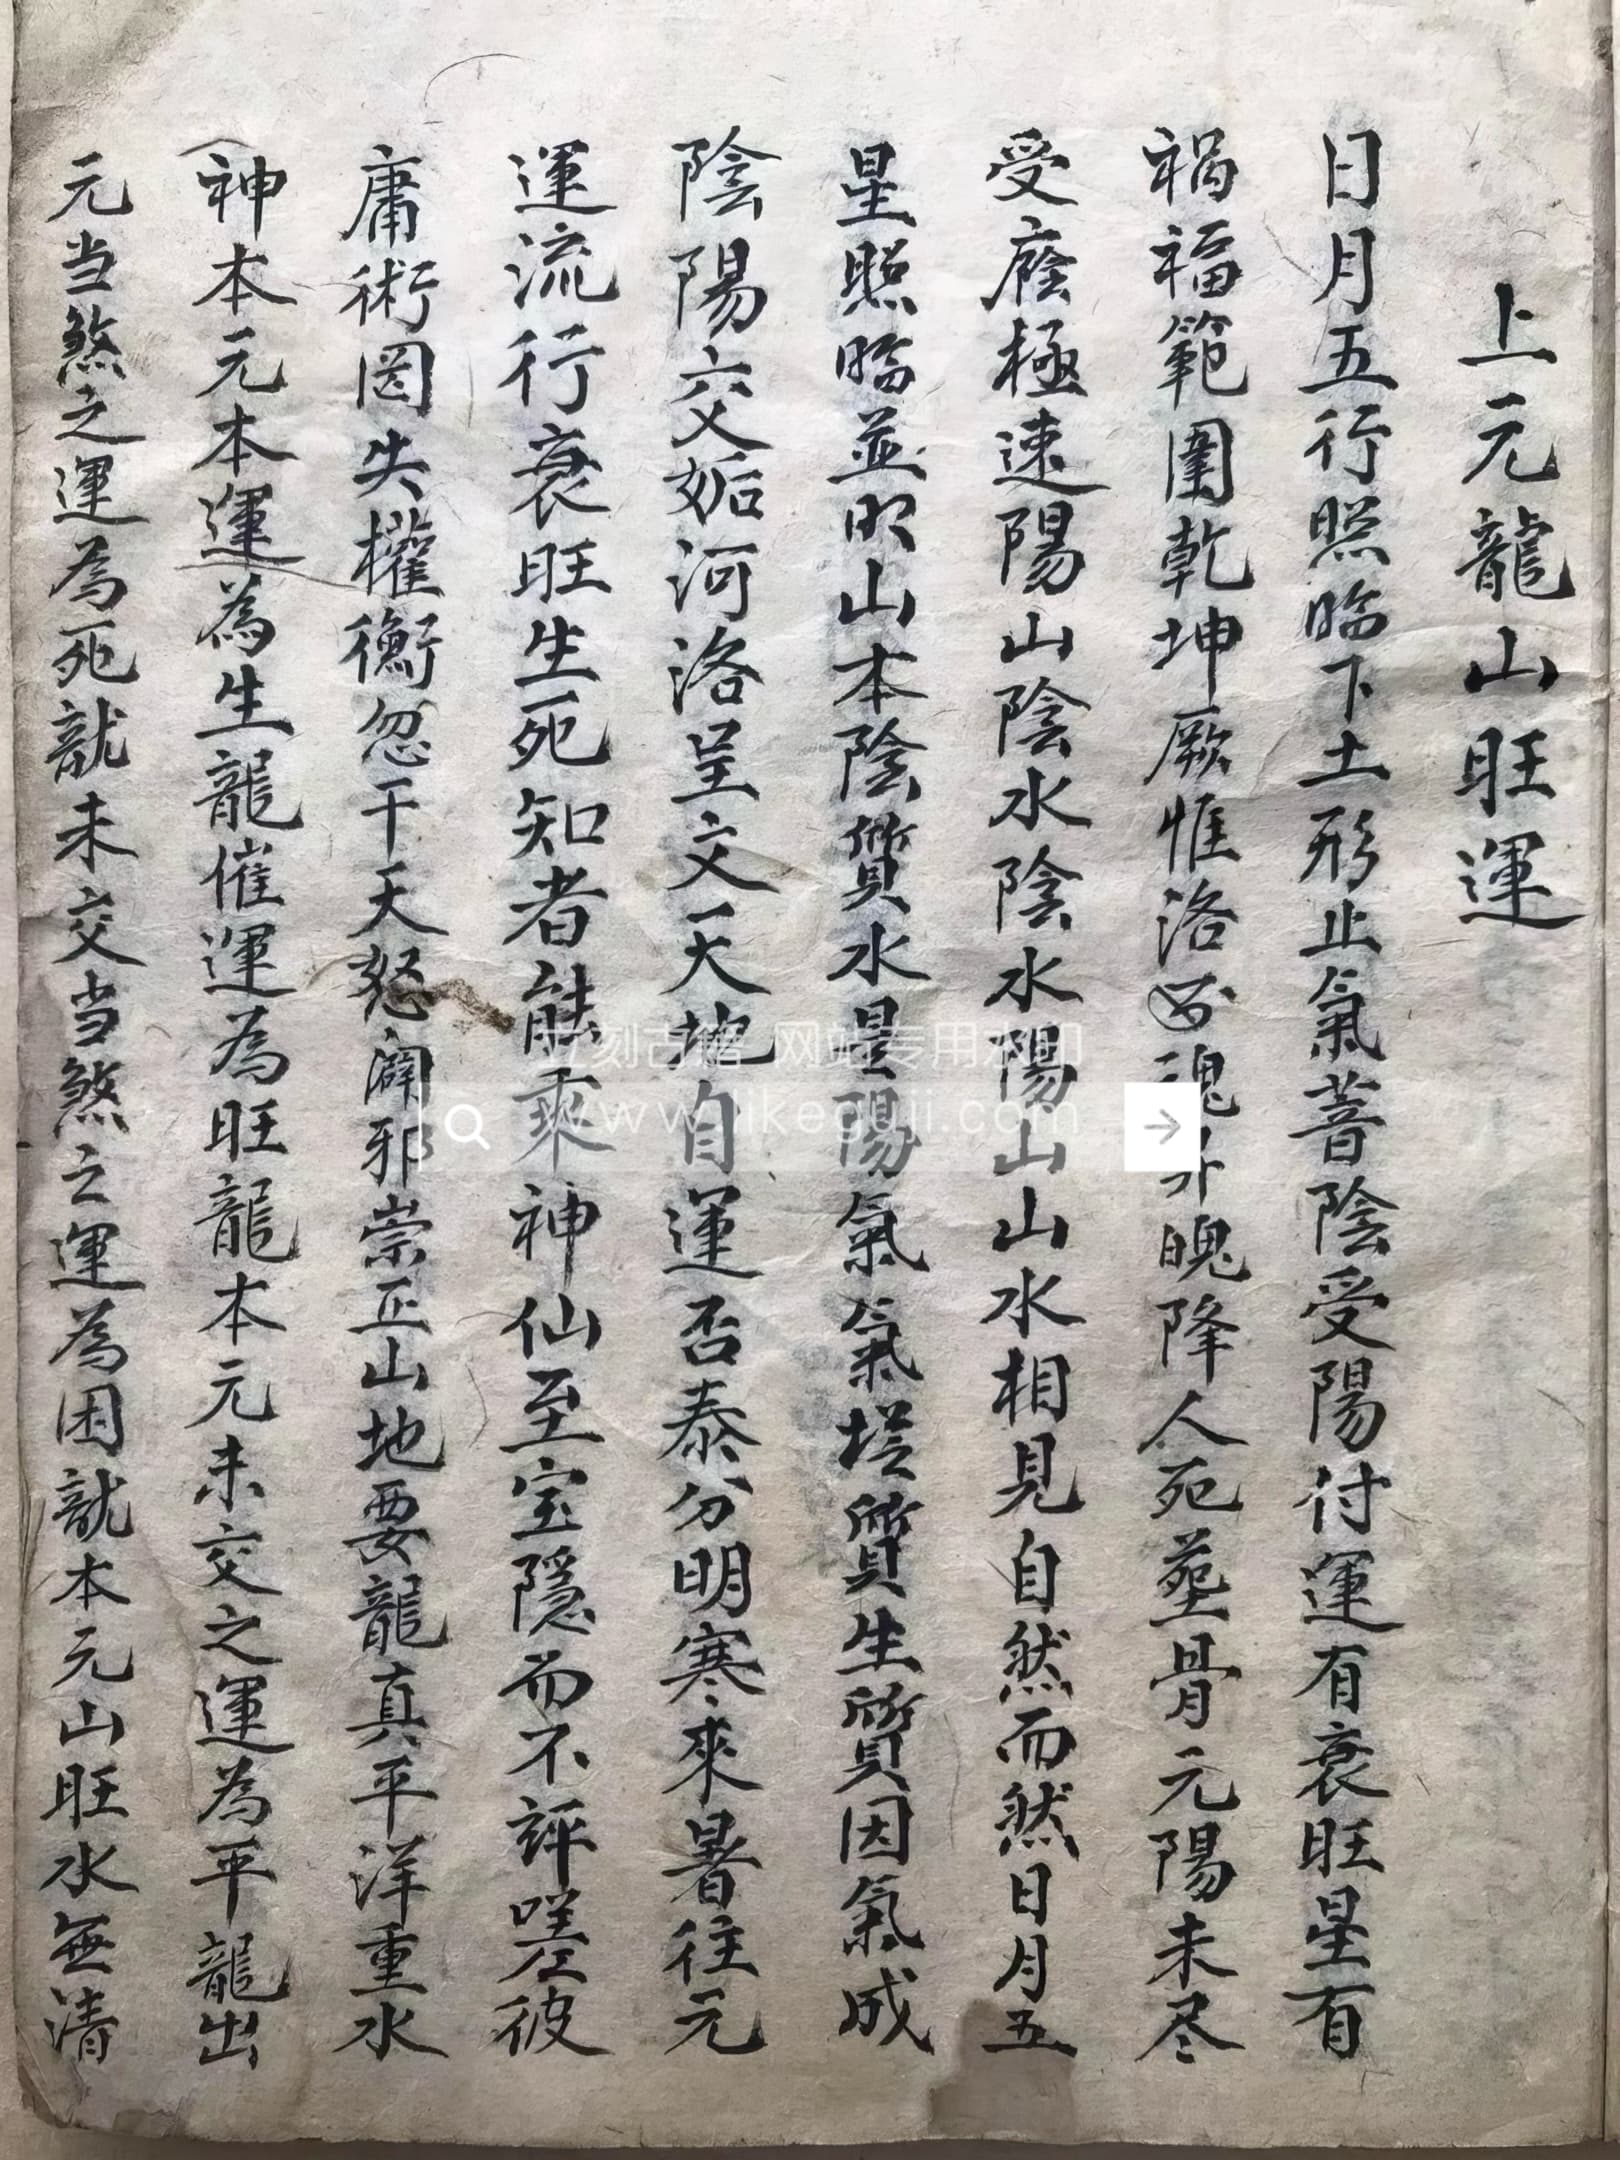 上元龍山旺運
日月五行照臨下土形止氣蓄陰受陽付運有衰旺星有
禍福範圍乾坤厥惟洛魂升魄降人死葬骨元陽未尽
受廕極速陽山陰水陰水陽山山水相見自然而然日月五
星照臨並明山本陰質水是陽氣氣從質生質因氣成
陰陽交姤河洛呈文天地自運否泰分明寒來暑往元
運流行衰旺生死知者能乘神仙至宝隱而不評嗟彼
庸術罔失權衡忽干天怒闢邪崇正山地要龍真平洋重水
神本元本運為生龍催運為旺龍本元未交之運為平龍出
元当煞之運為死龍未交当煞之運為困龍本元山旺水無清
立刻古籍 网站专用水印
www.likeguji.com